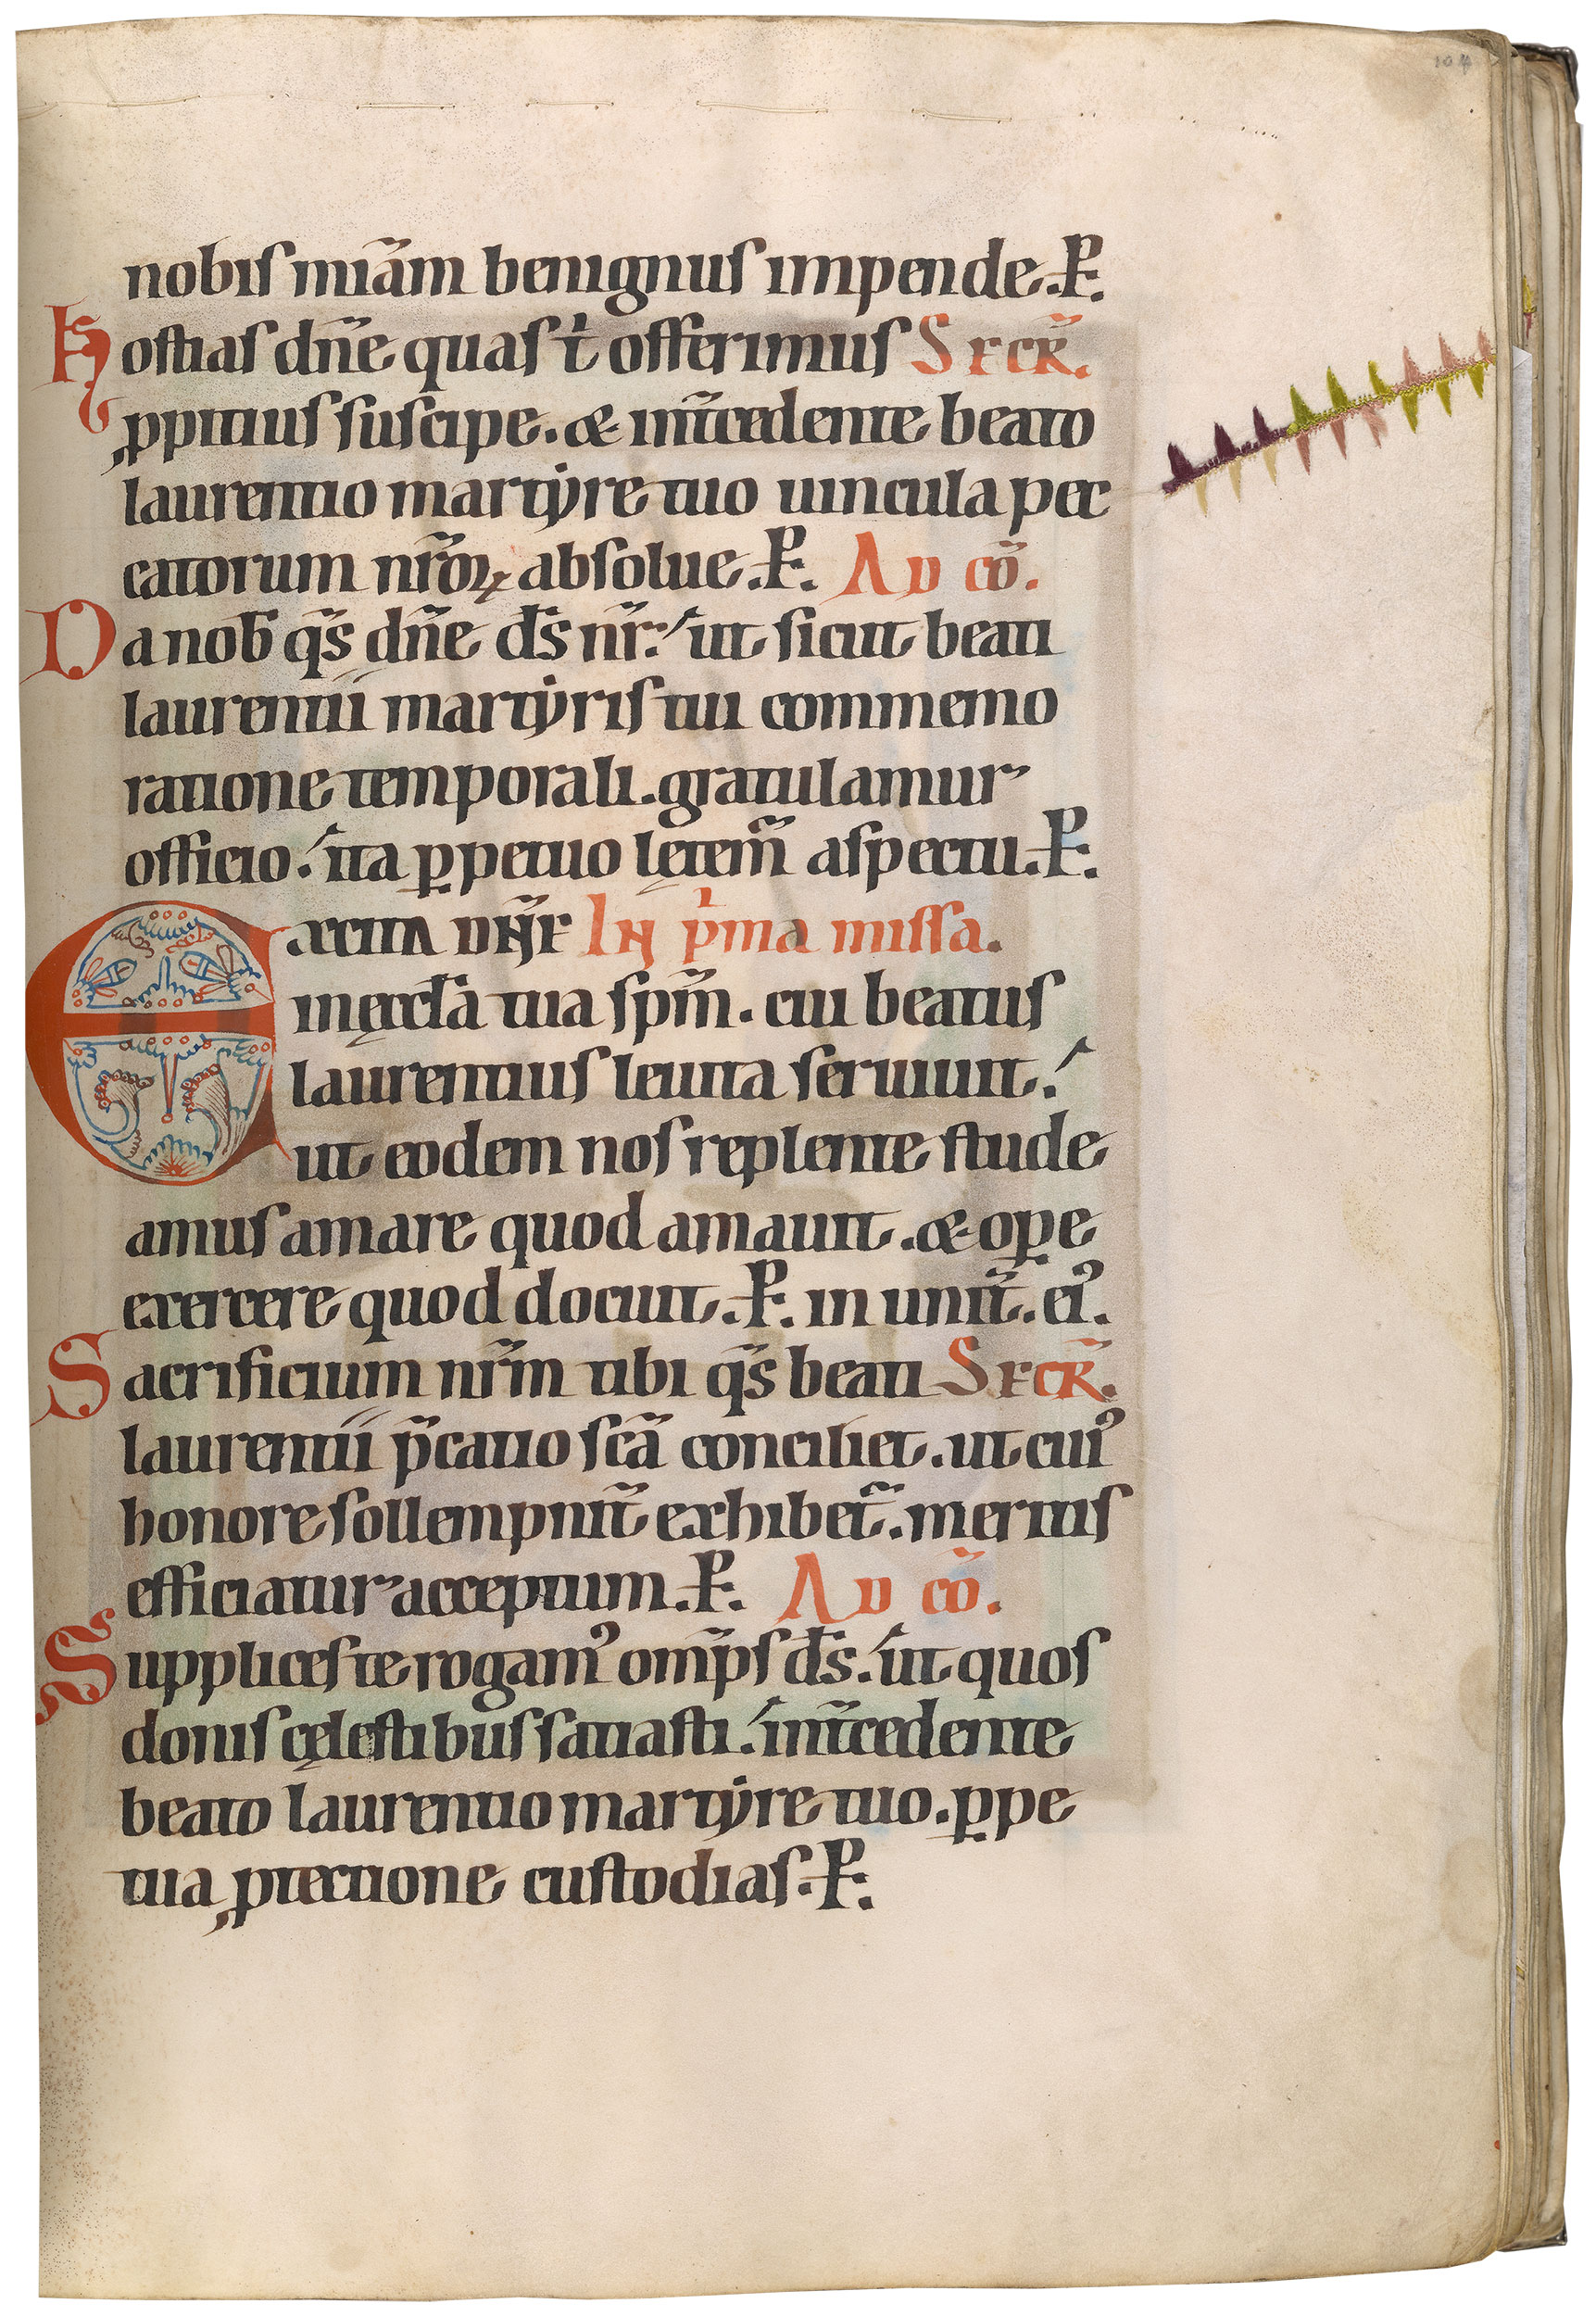 104
nobis miãm benignus impende. P̄.
Hostias dñe quas tͥ offerimus SECR̃.
ꝓpitius suscipe. & int̃cedente beato
laurentio martẏre tuo uincula pec
catorum nr̃oꝝ absolue. P̄. AD cõ.
Da nob̄ q̃s dñe d̄s nr̃. ut sicut beati
laurentíí martẏris tui commemo
ratione temporali. gratulamur
officio. ita ꝑpetuo lętem̃ aspectu. P̄.
Excita DÑE IN pͥma missa.
in ęccl̄a tua sp̃m. cui beatus
laurentius leuita seruiuit.
ut eodem nos replente stude
amus amare quod amauit. & oꝑe
exercere quod docuit. P̄. in unit̃. eiꝰ.
Sacrificium nr̃m tibi q̃s beati SECR̃.
laurentíí p̃catio sc̃a conciliet. ut cuiꝰ
honore sollempnit̃ exhibet̃. meritis
efficiatur acceptum. P̄. AD cõ.
Supplices te rogamꝰ om̃ps d̄s. ut quos
donis cęlestibus satiasti. int̃cedente
beato laurentio martẏre tuo. ꝑpe
tua ꝓtectione custodias. P̄.